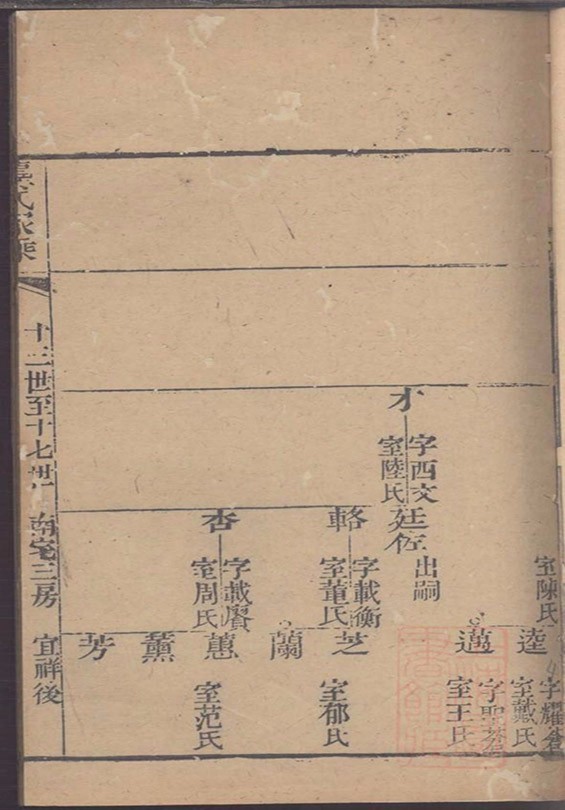 室陳氏
逵
字耀倉
室戴氏
邁
字聖
室王氏
才
字西文
室陸氏
廷佐
出嗣
輅
字載衡
室董氏
芝
室郁氏
蘭
杏
字載賡
室周氏
蕙
室范氏
薰
芳
氏家乘
十三世至十七世
南宅三房
宜祥後